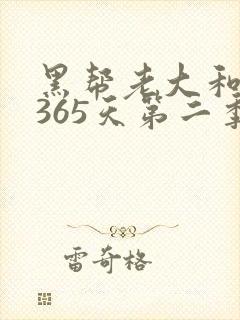 黑帮老大和
365天第二季
雷奇格